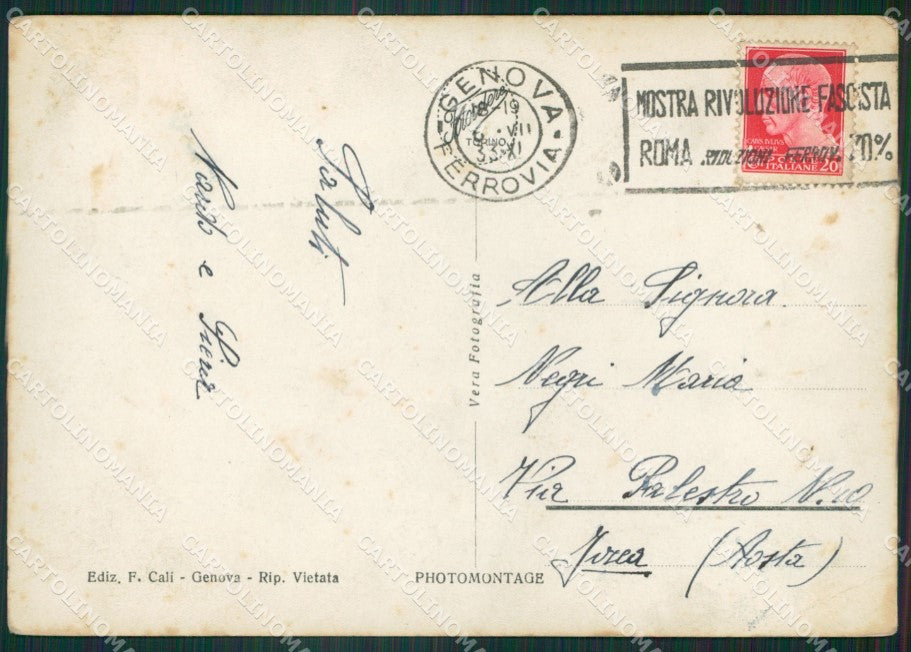 GENOVA
FERROVIA
18-19
VII
TORINO
33·XI
MOSTRA RIVOLUZIONE FASCISTA
ROMA RIDUZIONI FERROV. 70%
CENT. 20
ITALIANE
Saluti
e
Vera Fotografia
Alla Signora
Negri Maria
Via Palestro N. 10
Ivrea (Aosta)
Ediz. F. Calì - Genova - Rip. Vietata
PHOTOMONTAGE
CARTOLINOMANIA